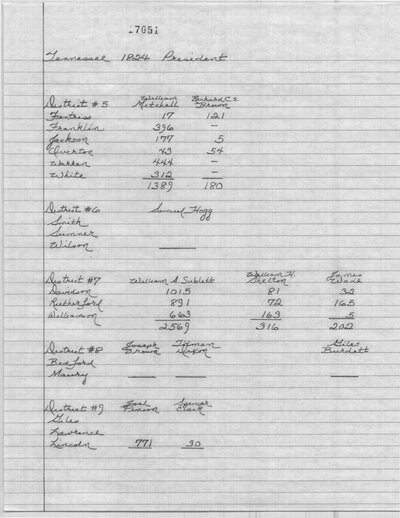 17051
Tennessee 1824 President
District #5 William Mitchell Richard C. S. Brown
Fentress 17 121
Franklin 396 -
Jackson 177 5
Overton 43 54
Warren 444 -
White 312 -
1389 180
District #6 Samuel Hogg
Smith
Sumner
Wilson
District #7 William A. Sublett William H. Shelton James Wade
Davidson 1015 81 32
Rutherford 891 72 165
Williamson 663 163 5
2569 316 202
District #8 Joseph Brown Tilman Dixon Giles Burdett
Bedford
Maury
District #9 Joel Pinson Spencer Clack
Giles
Lawrence
Lincoln 771 30